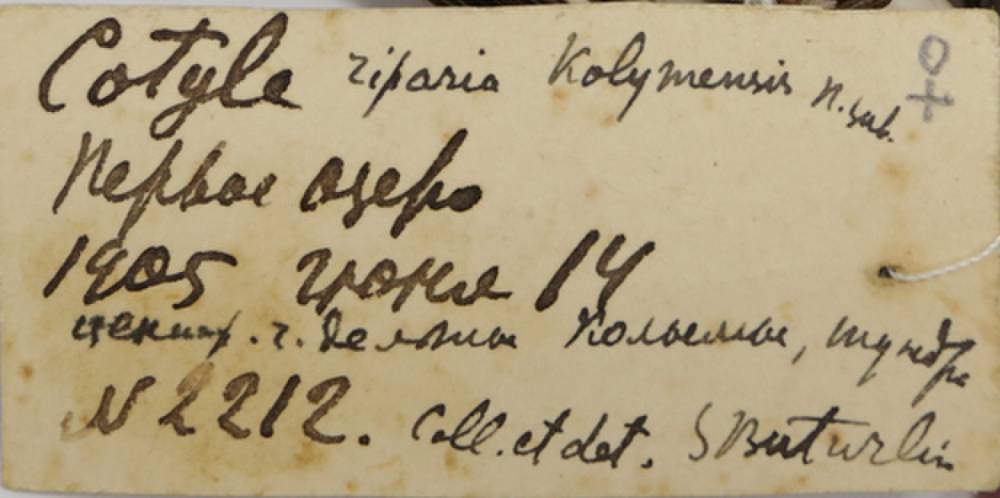 Cotyle riparia Kolymensis n. sub. ♀
Первое озеро
1905 июня 14
ч. дельты Колымы, тундра
N 2212. Coll. et det. S Buturlin